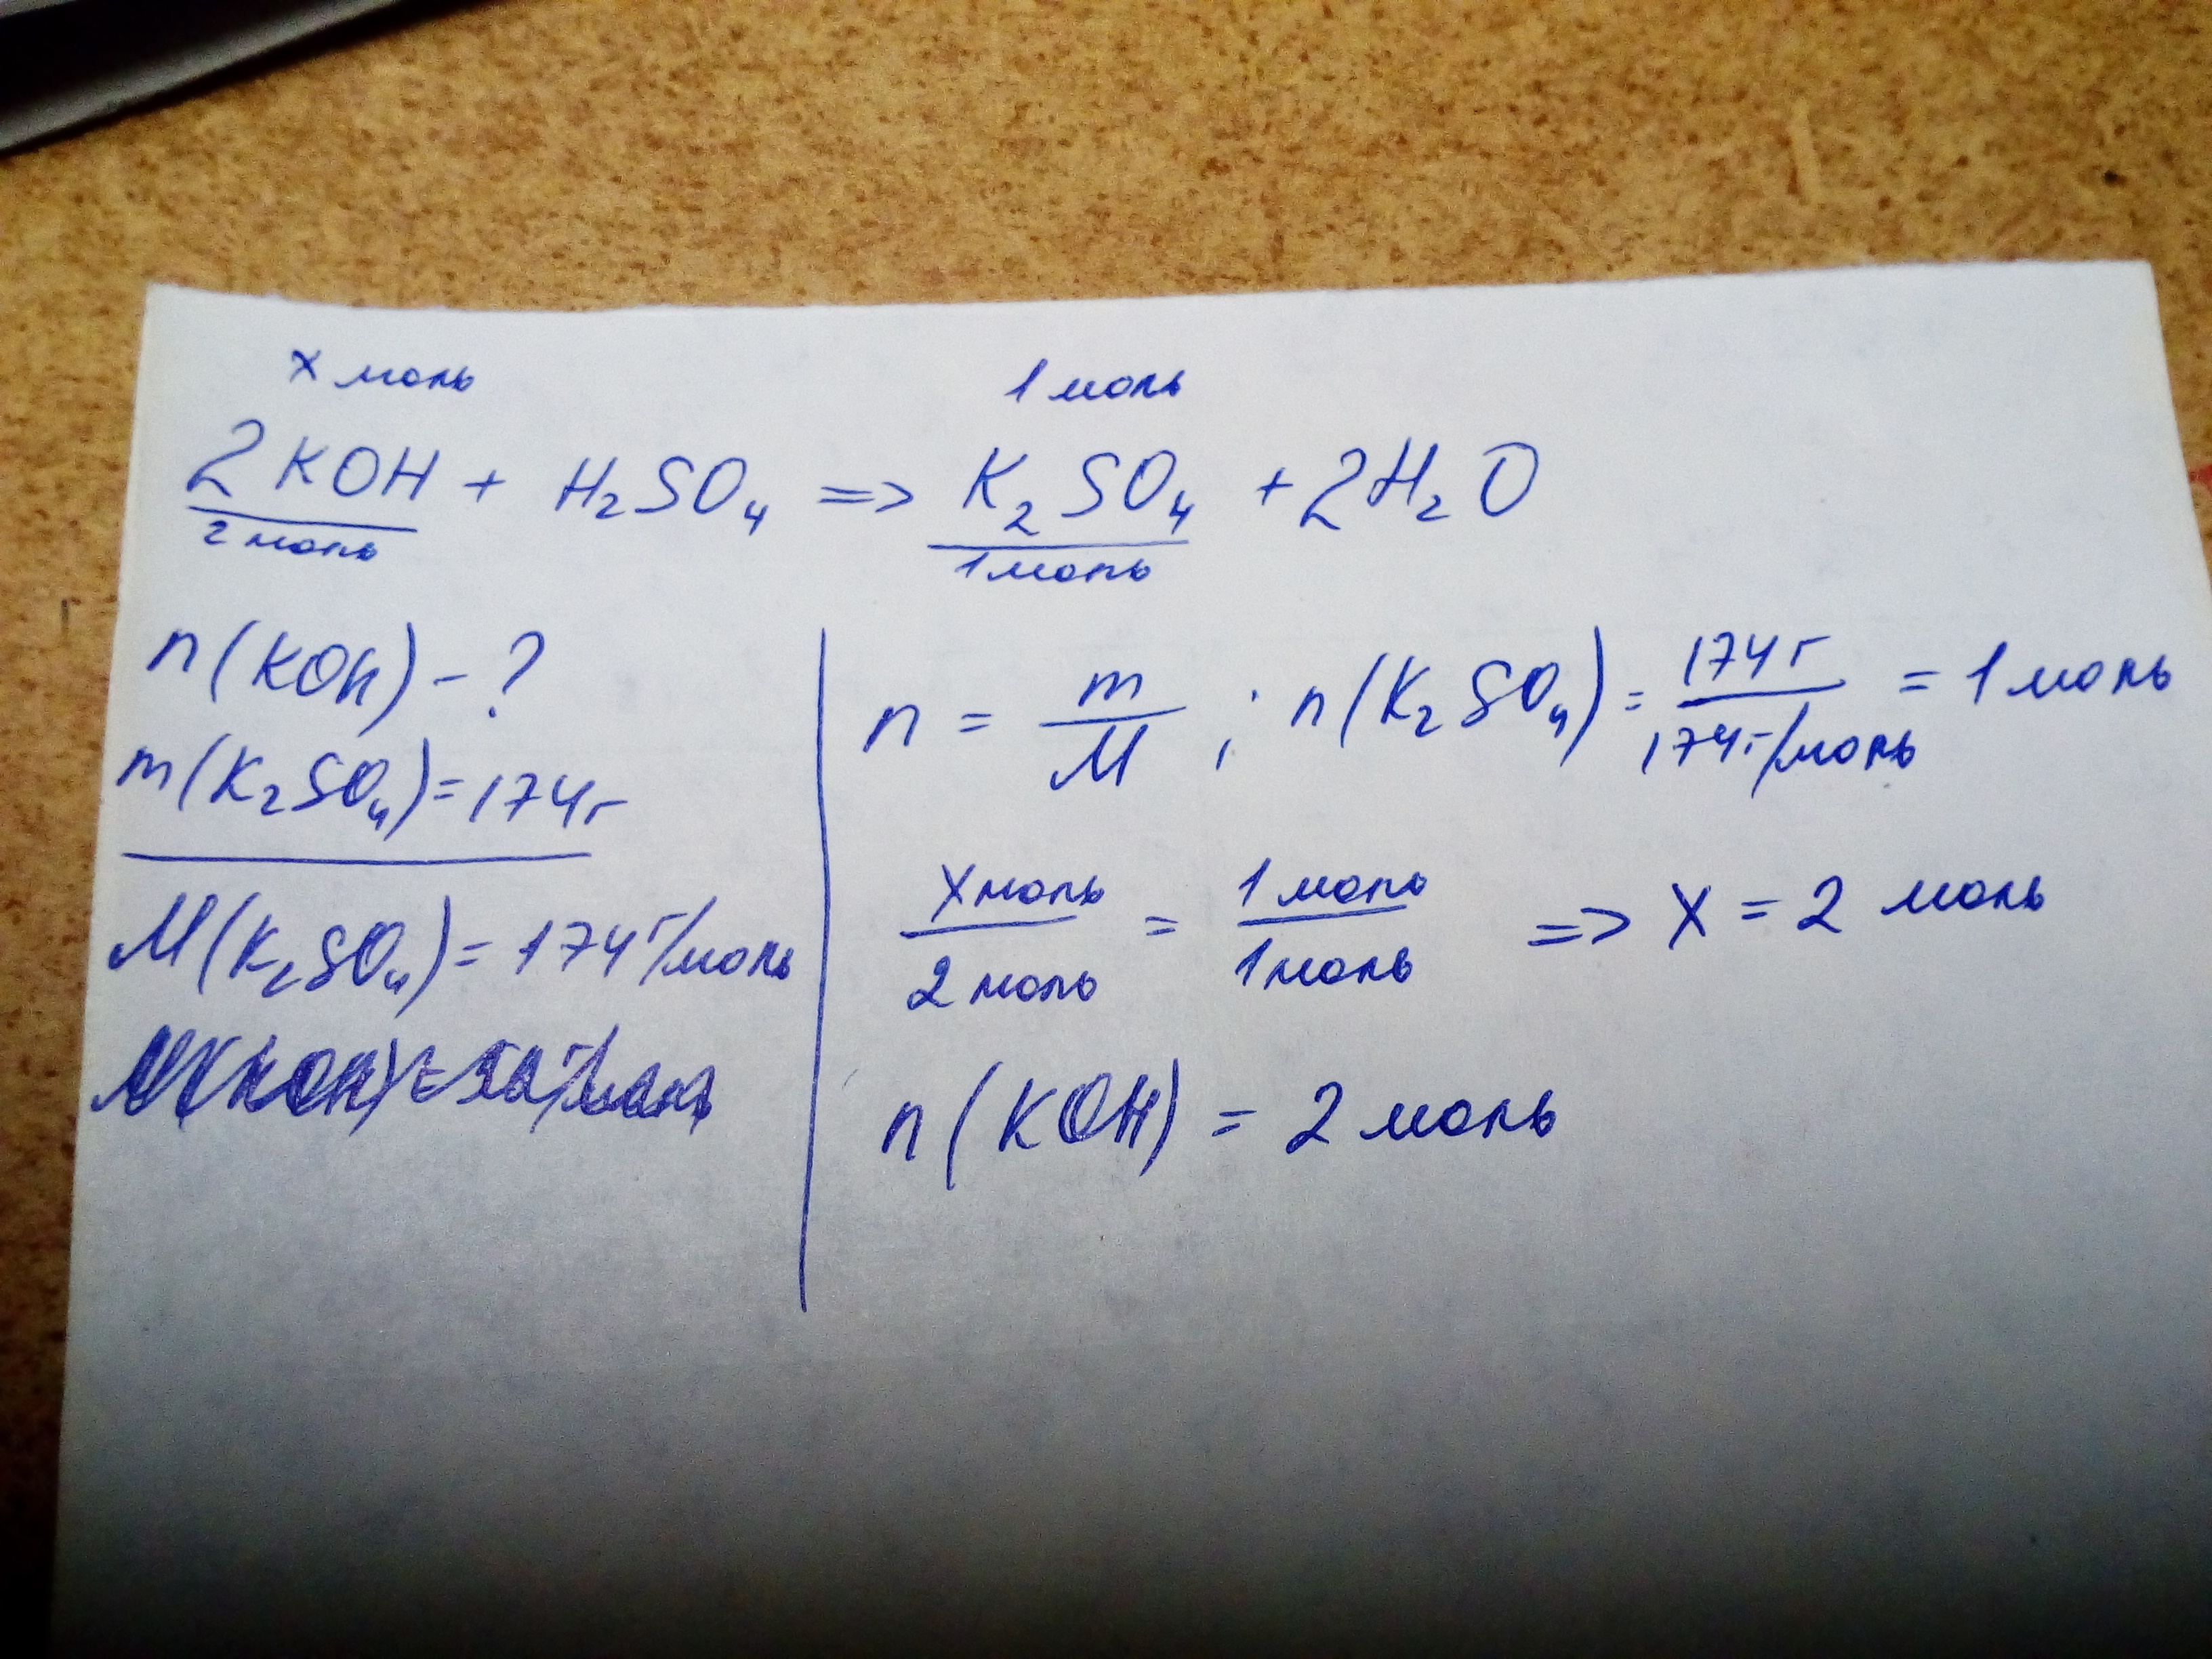 x моль 1 моль
2KOH + H₂SO₄ => K₂SO₄ + 2H₂O
2 моль 1 моль
n(KOH) - ?
m(K₂SO₄) = 174г
M(K₂SO₄) = 174 г/моль
n = m/M ; n(K₂SO₄) = 174г/174г/моль = 1 моль
x моль/2 моль = 1 моль/1 моль => x = 2 моль
n(KOH) = 2 моль